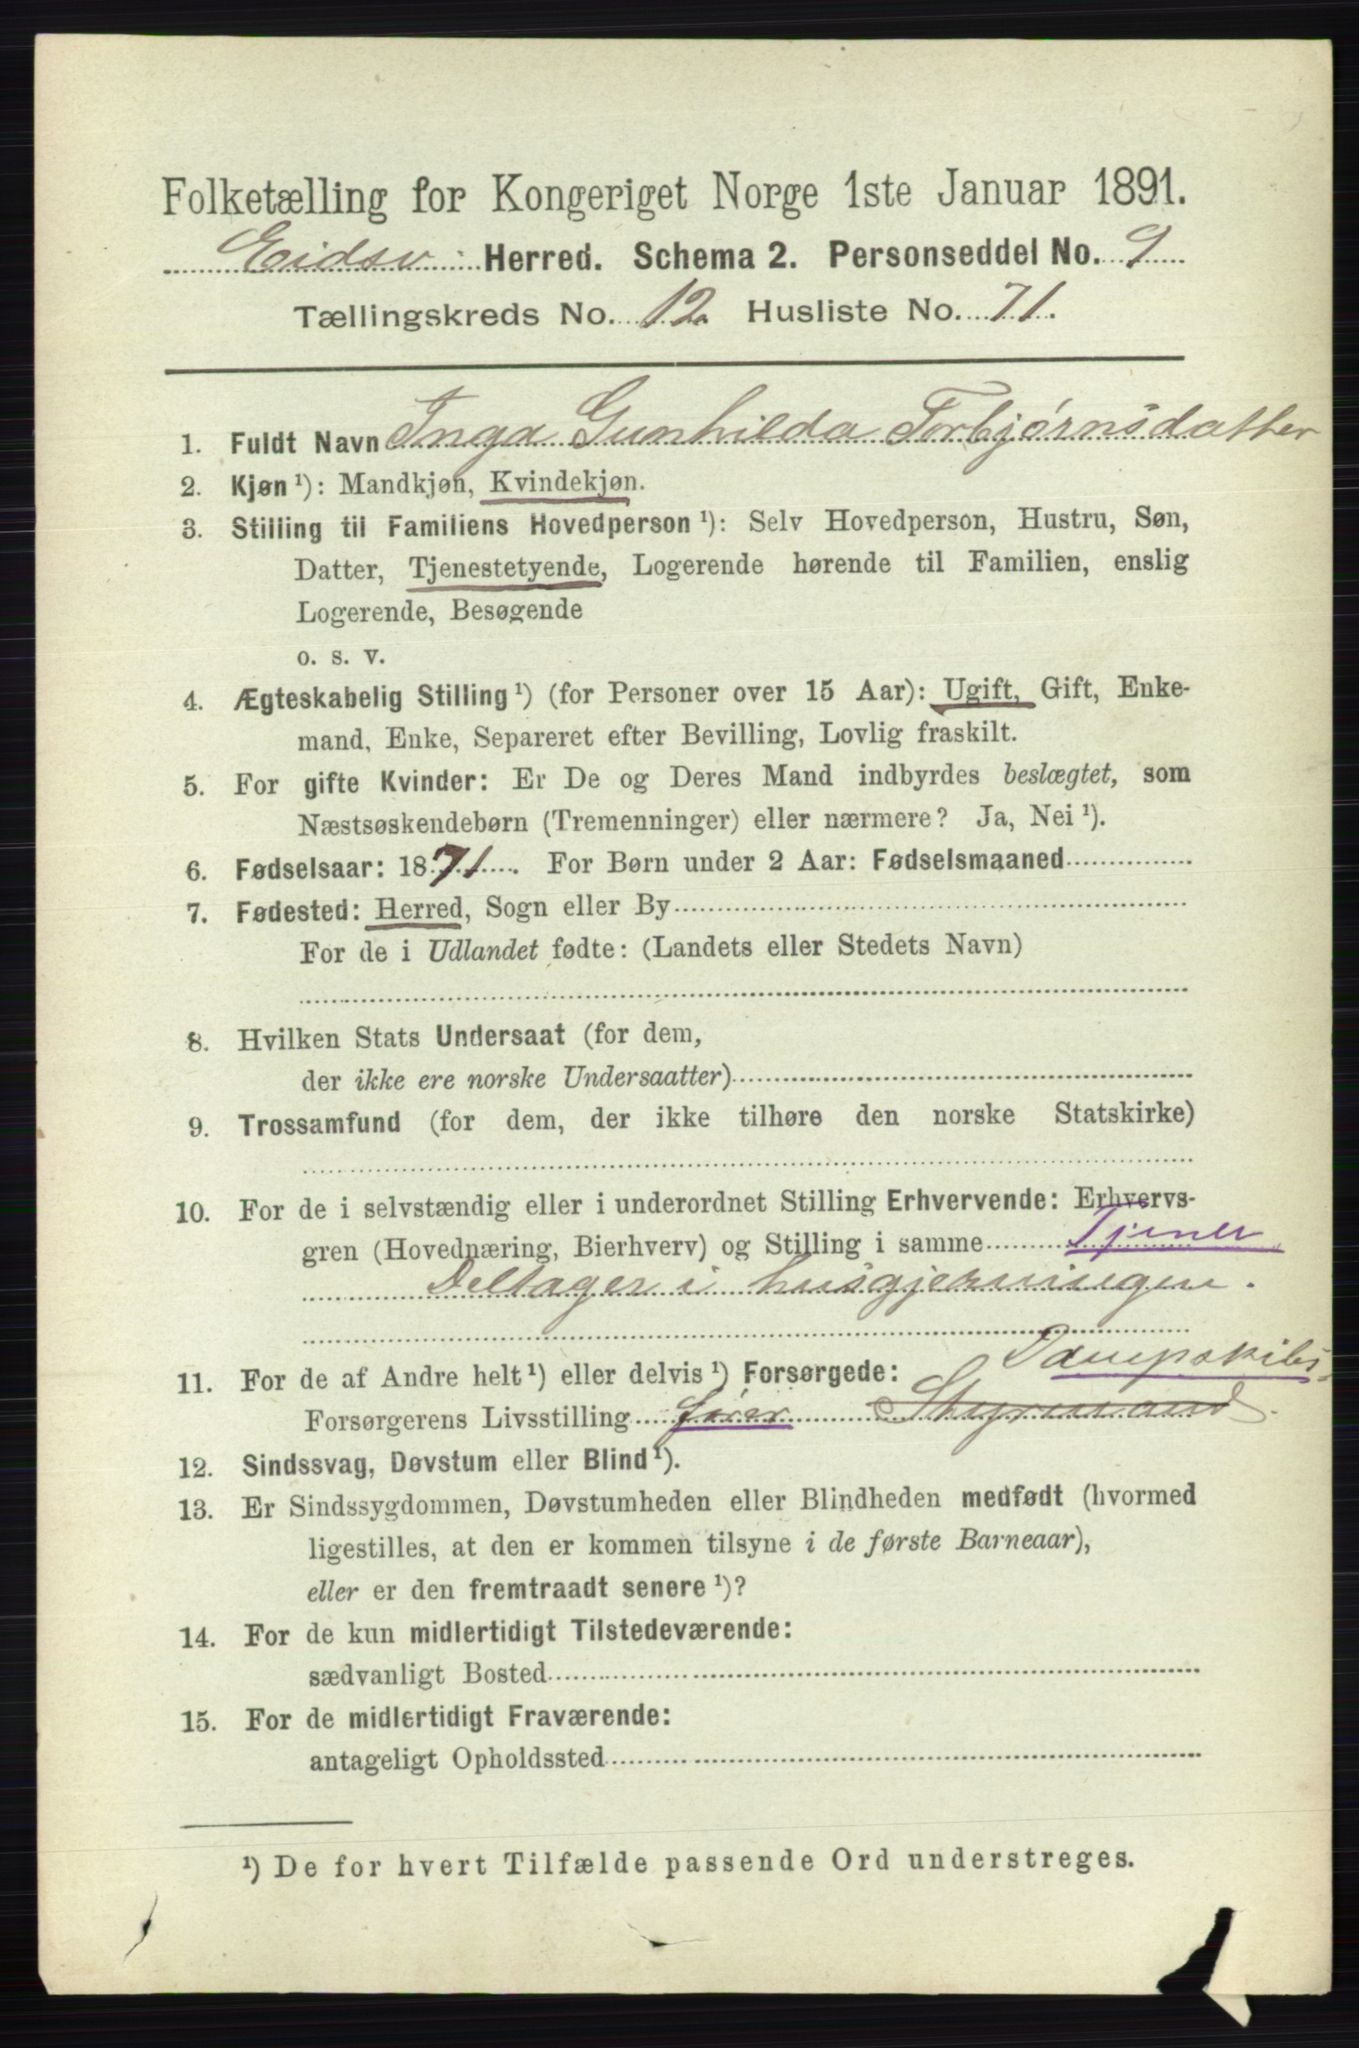 Folketælling for Kongeriget Norge 1ste Januar 1891.
Eidsv. Herred. Schema 2. Personseddel No. 9
Tællingskreds No. 12. Husliste No. 71.
1. Fuldt Navn Inga Gunhilda Torbjørnsdatter
2. Kjøn ¹): Mandkjøn, Kvindekjøn.
3. Stilling til Familiens Hovedperson ¹): Selv Hovedperson, Hustru, Søn,
Datter, Tjenestetyende, Logerende hørende til Familien, enslig
Logerende, Besøgende
o. s. v.
4. Ægteskabelig Stilling ¹) (for Personer over 15 Aar): Ugift, Gift, Enke-
mand, Enke, Separeret efter Bevilling, Lovlig fraskilt.
5. For gifte Kvinder: Er De og Deres Mand indbyrdes beslægtet, som
Næstsøskendebørn (Tremenninger) eller nærmere? Ja, Nei ¹).
6. Fødselsaar: 1871. For Børn under 2 Aar: Fødselsmaaned
7. Fødested: Herred, Sogn eller By
For de i Udlandet fødte: (Landets eller Stedets Navn)
8. Hvilken Stats Undersaat (for dem,
der ikke ere norske Undersaatter)
9. Trossamfund (for dem, der ikke tilhøre den norske Statskirke)
10. For de i selvstændig eller i underordnet Stilling Erhvervende: Erhvervs-
gren (Hovednæring, Bierhverv) og Stilling i samme Tjener
Deltager i husgjerningen.
Dampskibs-
11. For de af Andre helt ¹) eller delvis ¹) Forsørgede:
Forsørgerens Livsstilling fører Styrmand.
12. Sindssvag, Døvstum eller Blind ¹).
13. Er Sindssygdommen, Døvstumheden eller Blindheden medfødt (hvormed
ligestilles, at den er kommen tilsyne i de første Barneaar),
eller er den fremtraadt senere ¹)?
14. For de kun midlertidigt Tilstedeværende:
sædvanligt Bosted
15. For de midlertidigt Fraværende:
antageligt Opholdssted
¹) De for hvert Tilfælde passende Ord understreges.